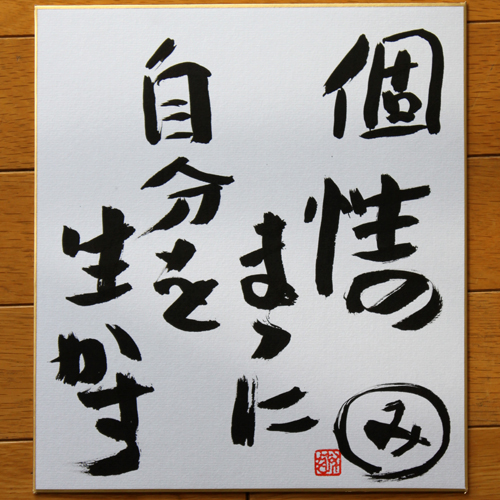 個性の
まゝに
自分を
生かす
み